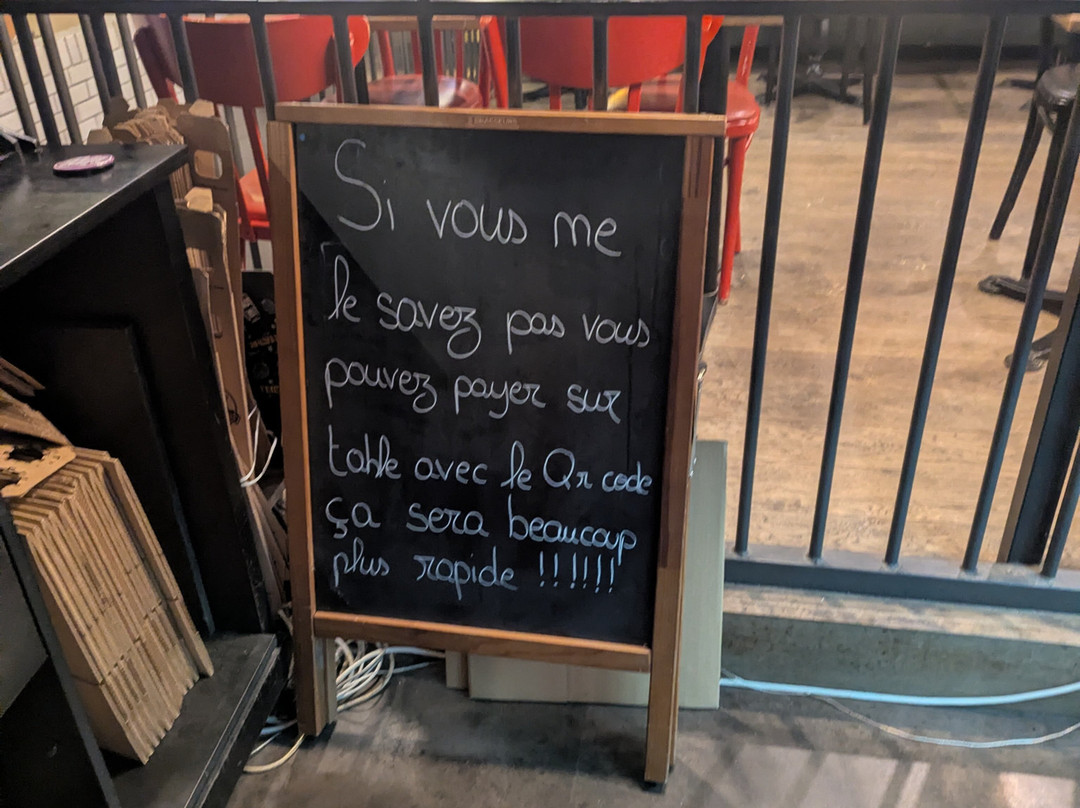 Si vous me
le savez pas vous
pouvez payer sur
table avec le Qr code
ça sera beaucoup
plus rapide !!!!!!